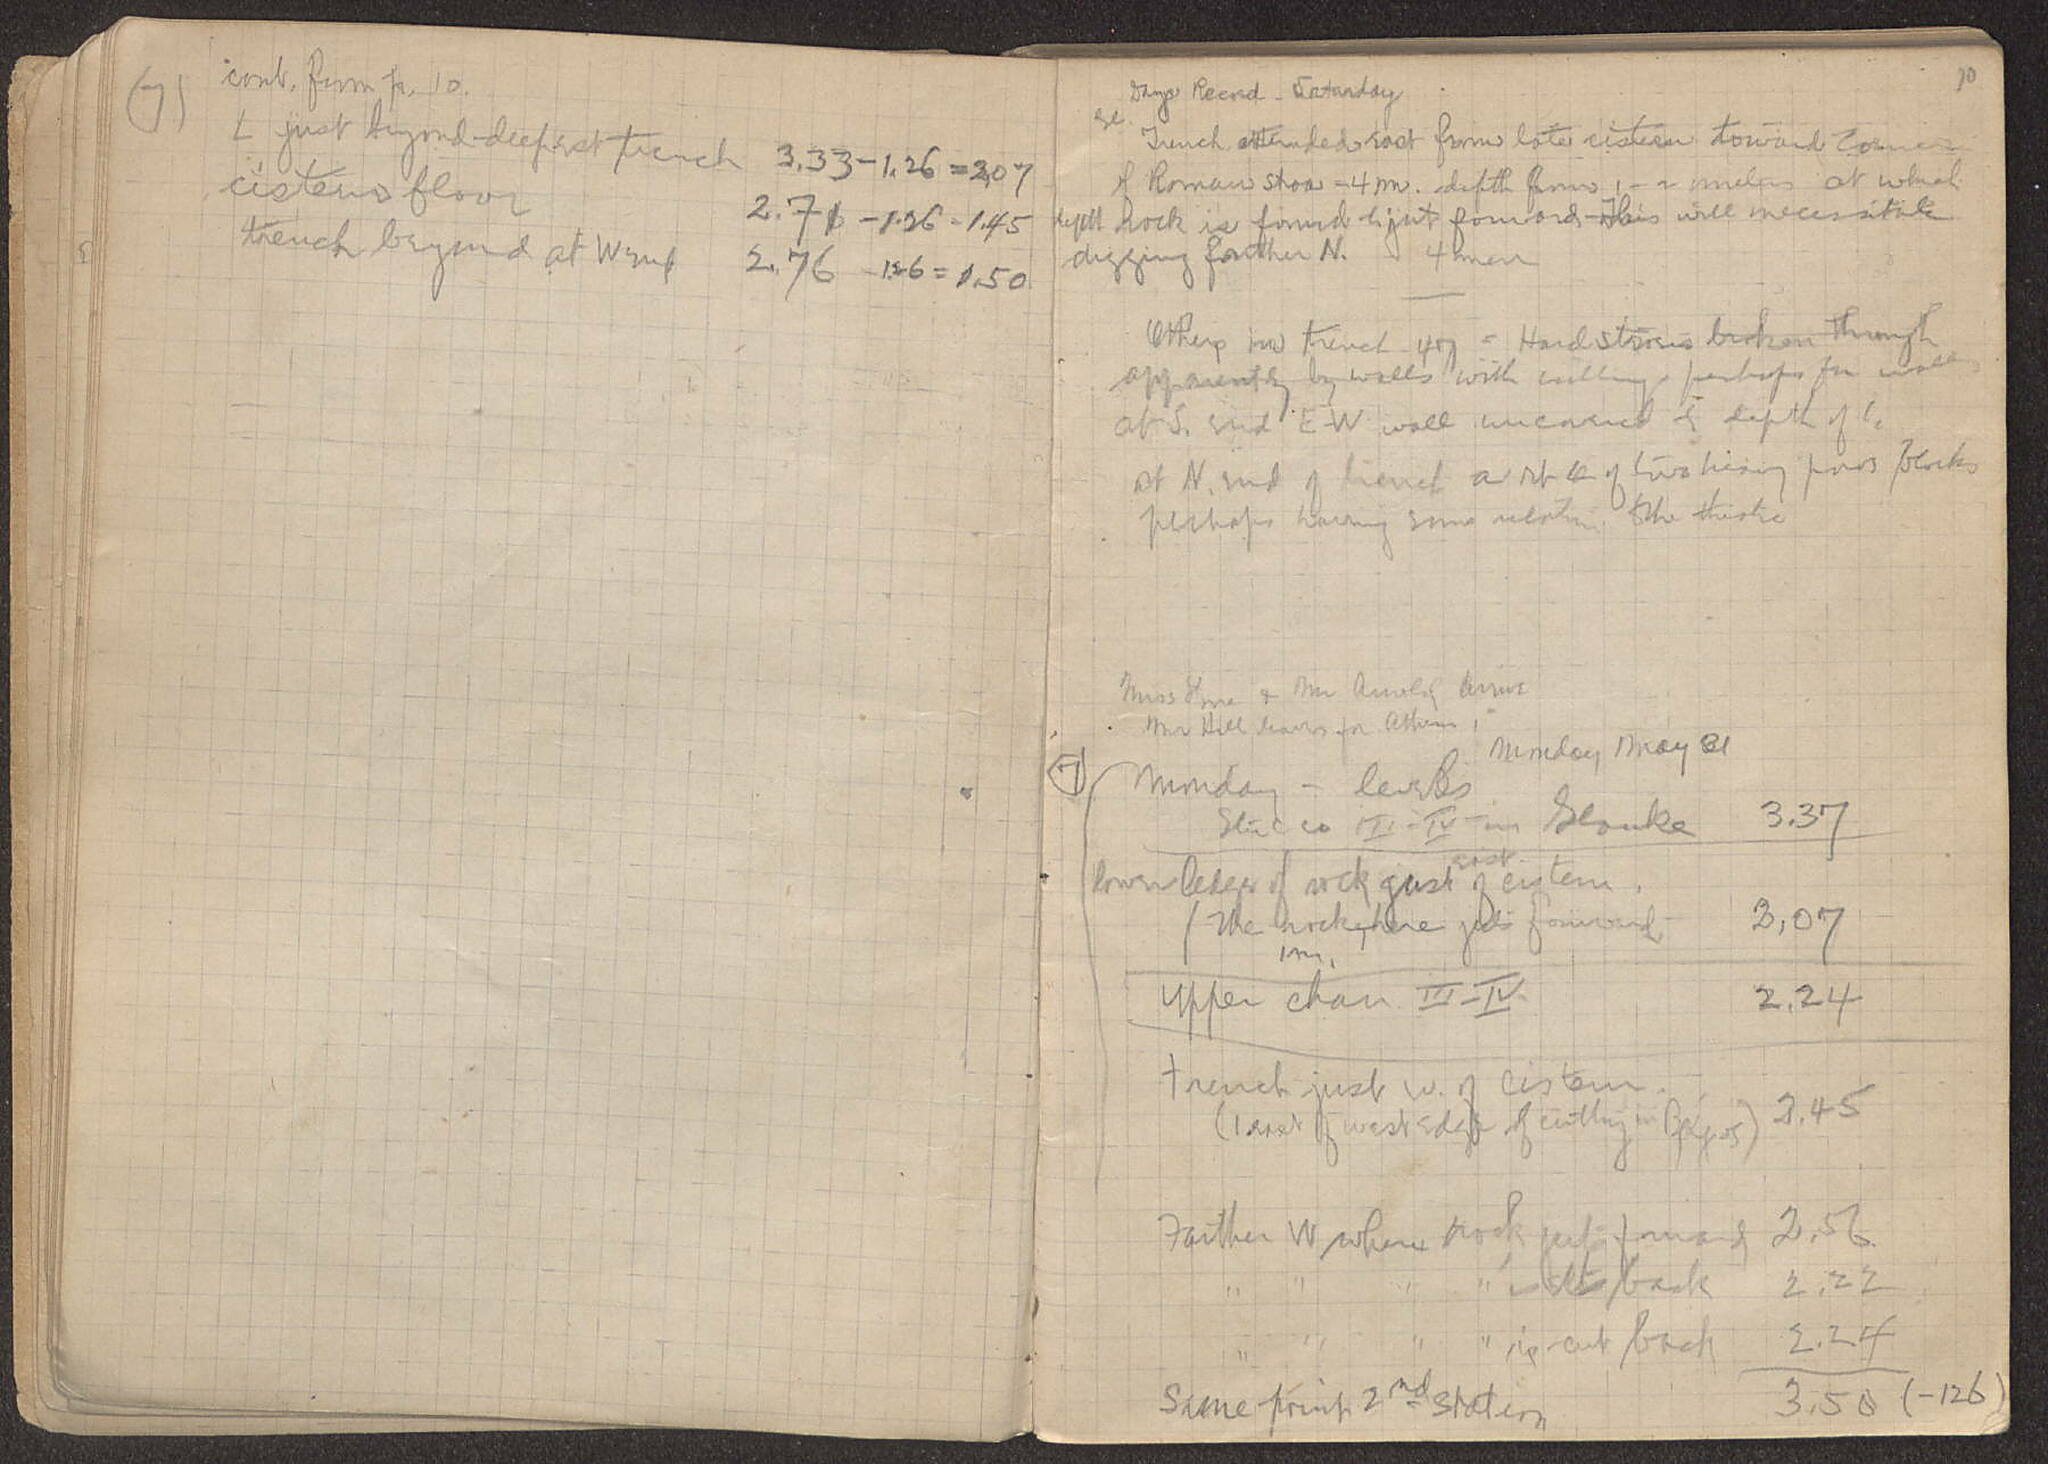 (7)
cont. from p. 10.
L just beyond deepest trench 3.33 - 1.26 = 2.07
cistern floor 2.71 - 1.26 = 1.45
trench beyond at W end 2.76 - 1.26 = 1.50
10
Days Record - Saturday
Trench extended east from late cistern toward corner
of Roman stoa = 4 m. depth from 1 - 2 meters at which
depth rock is found to jut forward - This will necessitate
digging farther N. 4 men
Others in trench = Hard stones broken through
apparently by walls with cuttings perhaps for walls
at S. end E-W wall uncovered depth of 1.
at N. end of trench a of two heavy poros blocks
perhaps having some relation to the theatre
Miss & Mr Arnold arrive
Mr Hill leaves for Athens
Monday May 31
(7) Monday - levels
Stucco III-IV in Glauke 3.37
lower ledge of rock just east of cistern.
(The rock here juts forward 3,07
1 m.
Upper cham III-IV 2.24
Trench just W. of cistern.
(1 east of west edge of cutting in) 2.45
Farther W where rock juts forward 2.56
" " " " sets back 2.22
" " " " is cut back 2.24
Same point 2nd station 3.50 (-126)